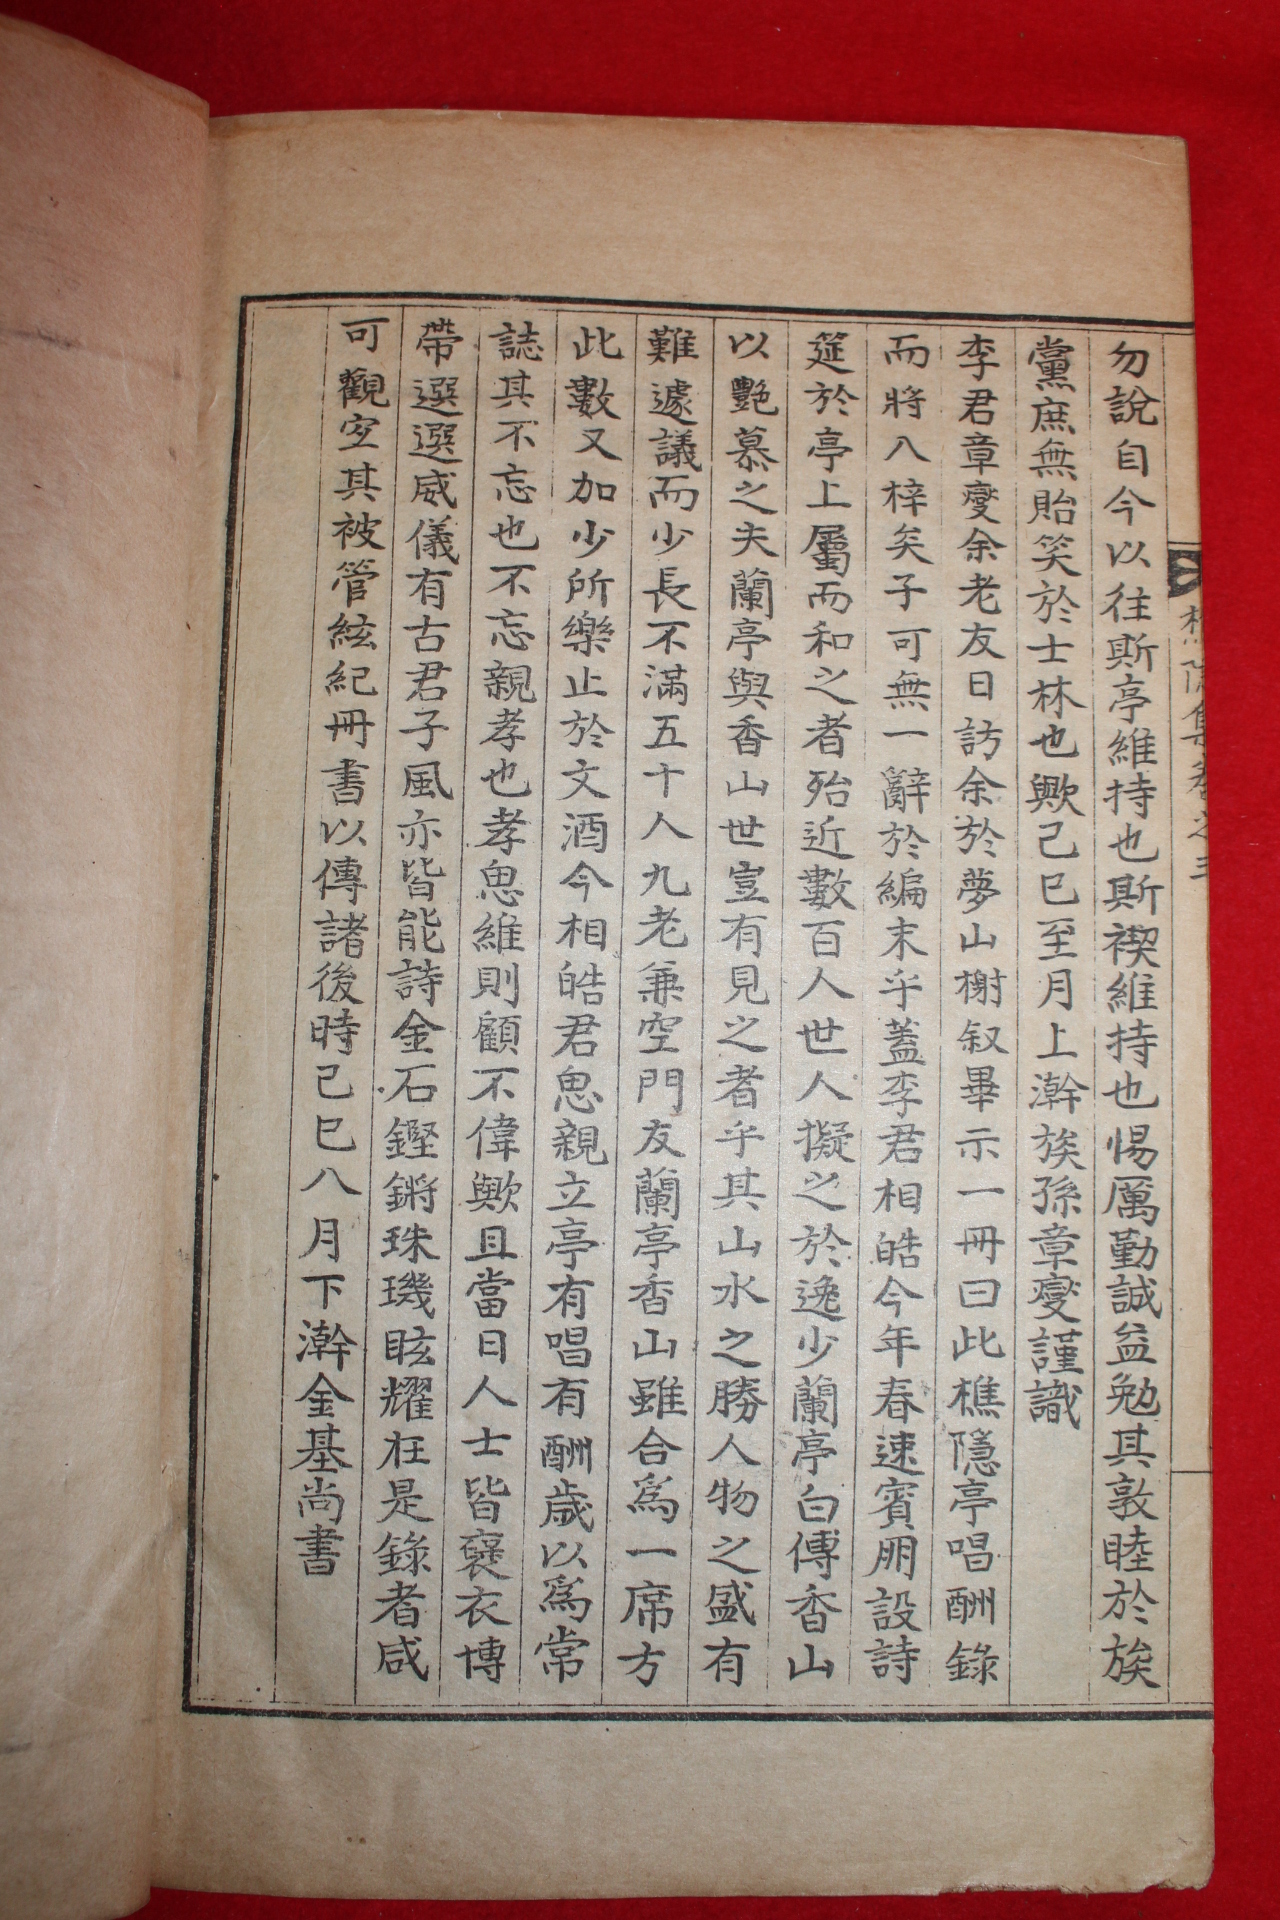 勿說自今以往斯亭維持也斯禊維持也惕厲勤誠益勉其敦睦於族
黨庶無貽笑於士林也歟己巳至月上澣族孫章燮謹識
李君章燮余老友日訪余於夢山榭叙畢示一冊曰此樵隱亭唱酬錄
而將入梓矣子可無一辭於編末乎蓋李君相皓今年春速賓朋設詩
筵於亭上屬而和之者殆近數百人世人擬之於逸少蘭亭白傅香山
以艷慕之夫蘭亭與香山世豈有見之者乎其山水之勝人物之盛有
難遽議而少長不滿五十人九老兼空門友蘭亭香山雖合爲一席方
此數又加少所樂止於文酒今相皓君思親立亭有唱有酬歲以爲常
誌其不忘也不忘親孝也孝思維則顧不偉歟且當日人士皆襃衣博
帶選選威儀有古君子風亦皆能詩金石鏗鏘珠璣眩耀在是錄者咸
可觀宜其被管絃紀冊書以傳諸後時己巳八月下澣金基尚書
樵隱集卷之三